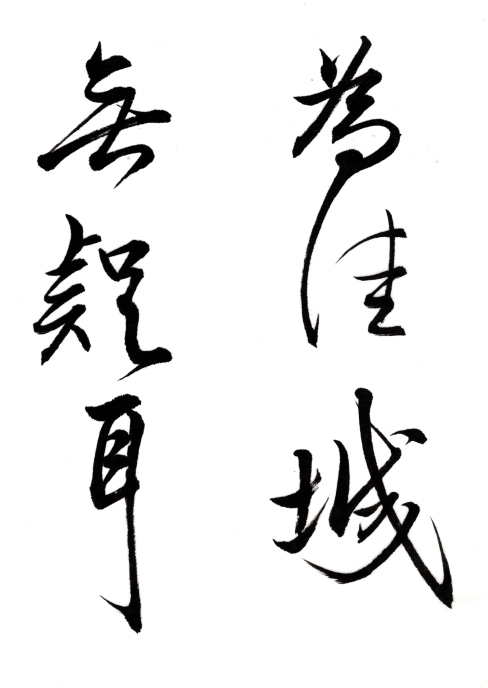 為佳城
無疑耳